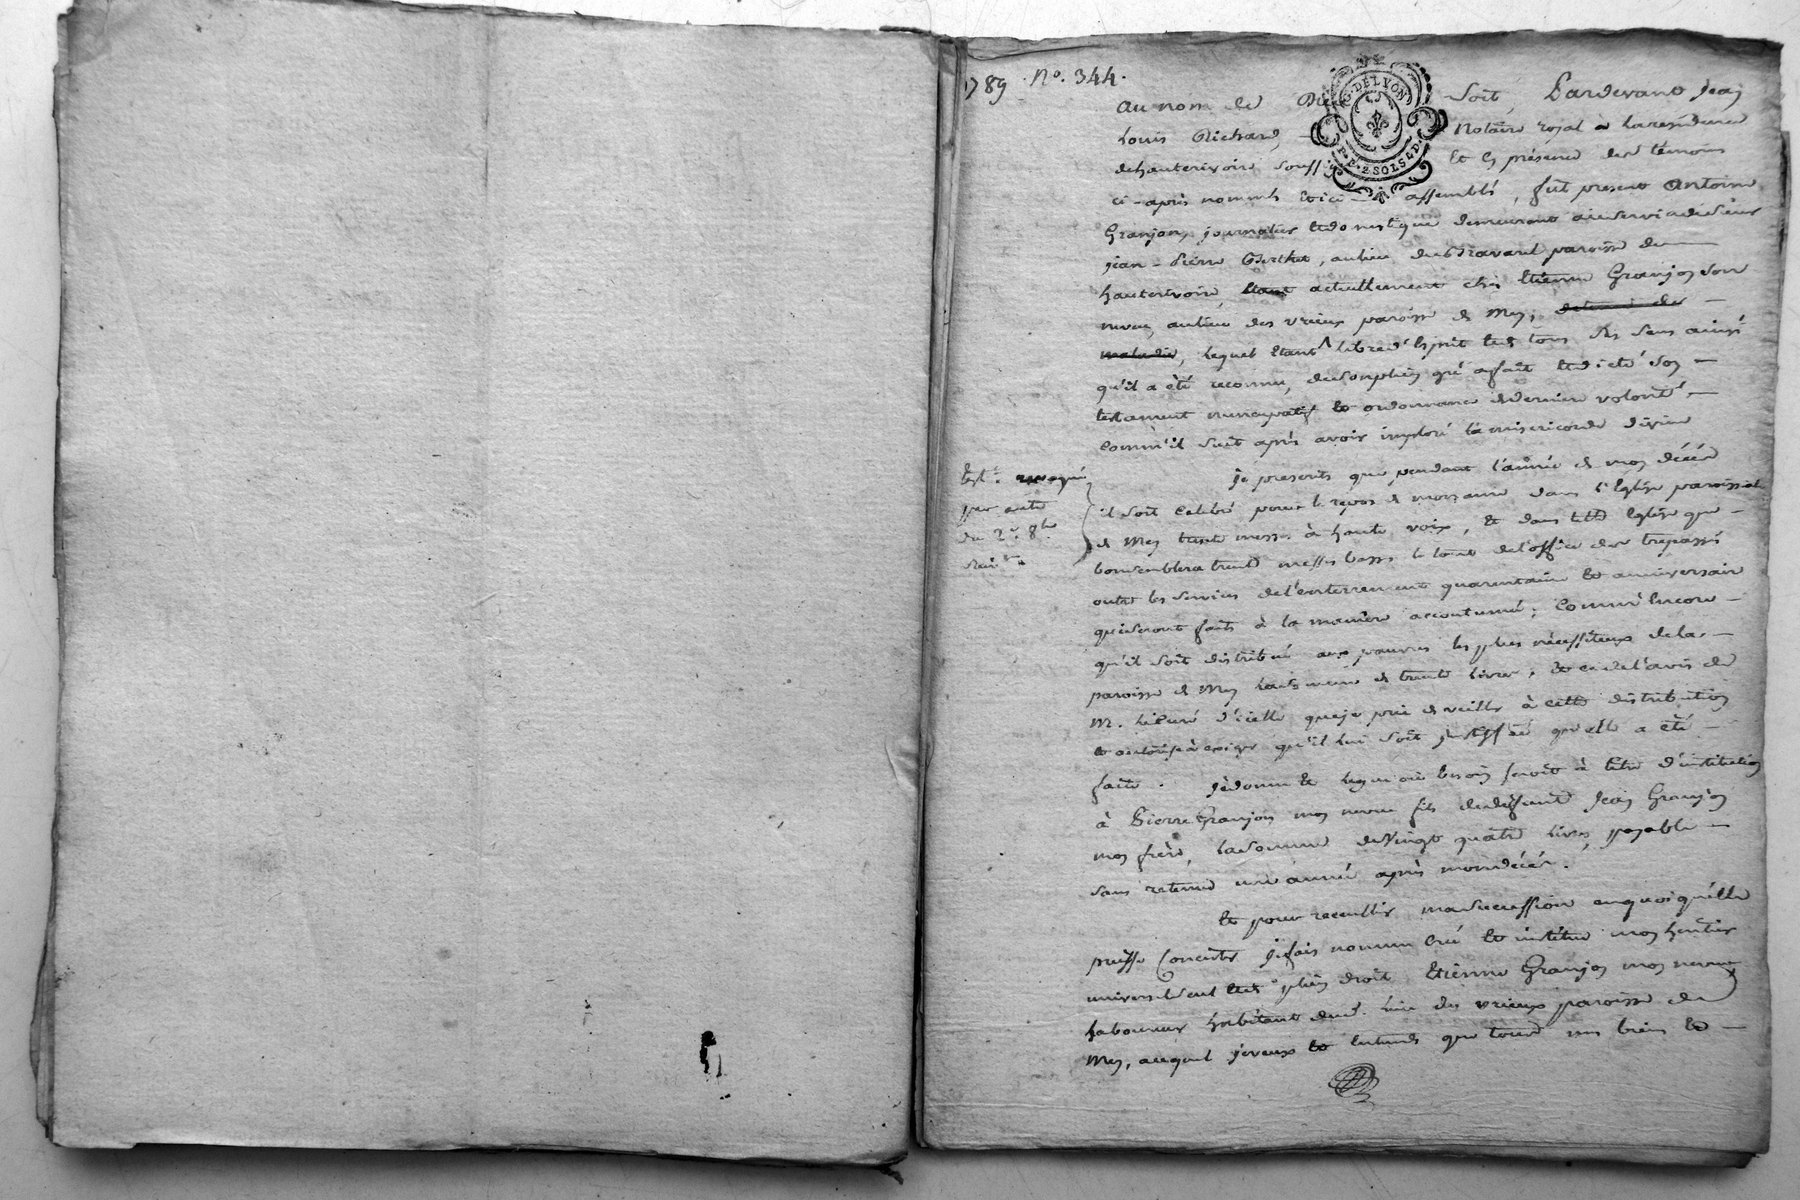 1789 · No. 344.
G. DE LYON
P. P. 2 SOLS 4 D.
Au nom de Dieu soit, Pardevant Jean
Louis Richard, Notaire royal à la résidence
de hauterivoire soussigné Et En présence des témoins
ci-après nommés Et ici assemblés, fut present Antoine
Granjon, journalier Et domestique demeurant au service du Sieur
jean-Pierre Berthet, au lieu du Bravard paroisse de
hauterivoire, Etant actuellement chés Etienne Granjon son
neveu, au lieu des Vrieux paroisse de Mey, detenu de
maladie, Lequel Etant libre d'Esprit Et de tous ses sens ainsi
qu'il a été reconnu, de son plein gré a fait Et dicté son
testament nuncupatif Et ordonnance de derniere volonté
comm'il suit après avoir imploré la misericorde divine
je prescrits que pendant l'année de mon décès
il soit celebré pour le repos de mon ame dans l'Eglise paroissiale
de Mey trente messes à haute voix, Et dans telle Eglise que
bon semblera trente messes basses le tout de l'office des trepassés
outre les services de l'enterrement quarantaine Et anniversaire
qui seront faits à la manière accoutumée; comm'Encore
qu'il soit distribué aux pauvres les plus nécessiteux de la
paroisse de Mey la somme de trente livres, Et ce de l'avis de
M. le Curé d'icelle que je prie de veiller à cette distribution
Et autorise à exiger qu'il lui soit justifié qu'elle a été
faite. Je donne Et legue où besoin seroit à titre d'institution
à Pierre Granjon mon neveu fils de deffunt Jean Granjon
mon frère, la somme de Vingt quatre livres, payable
sans retenue une année après mon décès.
Et pour recueillir ma succession en quoi qu'elle
puisse consister je fais nomme crée Et institue mon héritier
universel seul Et de plein droit Etienne Granjon mon neveu
laboureur habitant dud. lieu des Vrieux paroisse de
Mey, auquel je veux Et Entends que tous mes biens Et
Test. revoqué
par acte
du 2e 8bre
suivt.